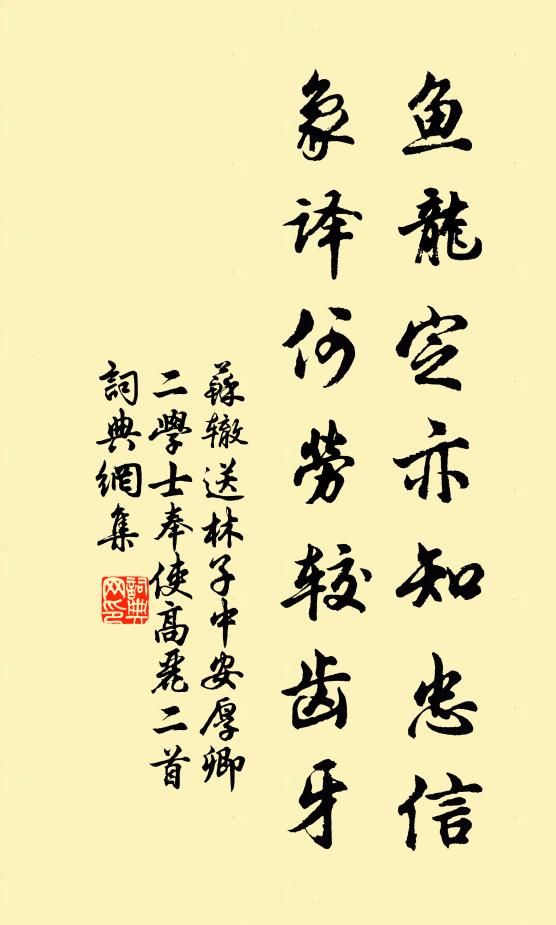 鱼龍定亦知忠信
象译何劳较齿牙
蘇辙送林子中安厚卿
二學士奉使高麗二首
詞典網集
詞典網印